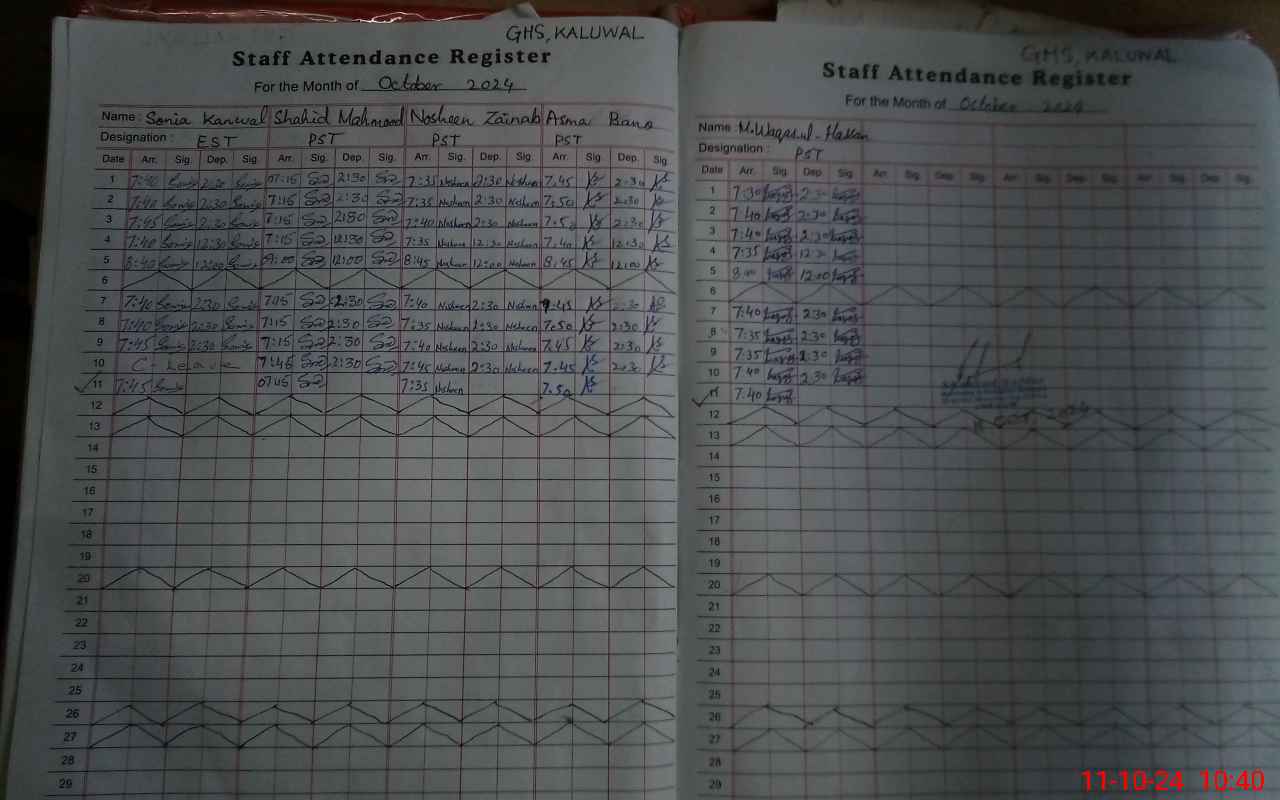 GHS, KALUWAL
Staff Attendance Register
For the Month of October 2024
Name : Sonia Kanwal Shahid Mahmood Nosheen Zainab Asma Bano
Designation : EST PST PST PST
Date Arr. Sig. Dep. Sig. Arr. Sig. Dep. Sig. Arr. Sig. Dep. Sig. Arr. Sig. Dep. Sig.
1 7:40 2:30 07:15 2:30 7:35 Nosheen 2:30 Nosheen 7.45 2:30
2 7:40 2:30 7:15 2:30 7:35 Nosheen 2:30 Nosheen 7.50 2:30
3 7:45 2:30 7:15 2:30 7:40 Nosheen 2:30 Nosheen 7.50 2:30
4 7:40 12:30 7:15 12:30 7:35 Nosheen 12:30 Nosheen 7.40 12:30
5 8:40 12:00 09:00 12:00 8:45 Nosheen 12:00 Nosheen 8.45 12:00
6
7 7:40 2:30 7:15 2:30 7:40 Nosheen 2:30 Nosheen 7.45 2:30
8 7:40 2:30 7:15 2:30 7:35 Nosheen 2:30 Nosheen 7.50 2:30
9 7:45 2:30 7:15 2:30 7:40 Nosheen 2:30 Nosheen 7.45 2:30
10 C-Leave 7:45 2:30 7:45 Nosheen 2:30 Nosheen 7.45 2:30
11 7:45 07:15 7:35 Nosheen 7.50
12
13
14
15
16
17
18
19
20
21
22
23
24
25
26
27
28
29
GHS, KALUWAL
Staff Attendance Register
For the Month of October 2024
Name : M.Waqas.ul-Hassan
Designation : PST
Date Arr. Sig. Dep. Sig. Arr. Sig. Dep. Sig. Arr. Sig. Dep. Sig. Arr. Sig. Dep. Sig.
1 7:30 2:30
2 7:40 2:30
3 7:40 2:30
4 7:35
5 8:00 12:00
6
7 7:40 2:30
8 7:35 2:30
9 7:35 2:30
10 7:40 2:30
11 7:40
12
13
14
15
16
17
18
19
20
21
22
23
24
25
26
27
28
29
11-10-24 10:40